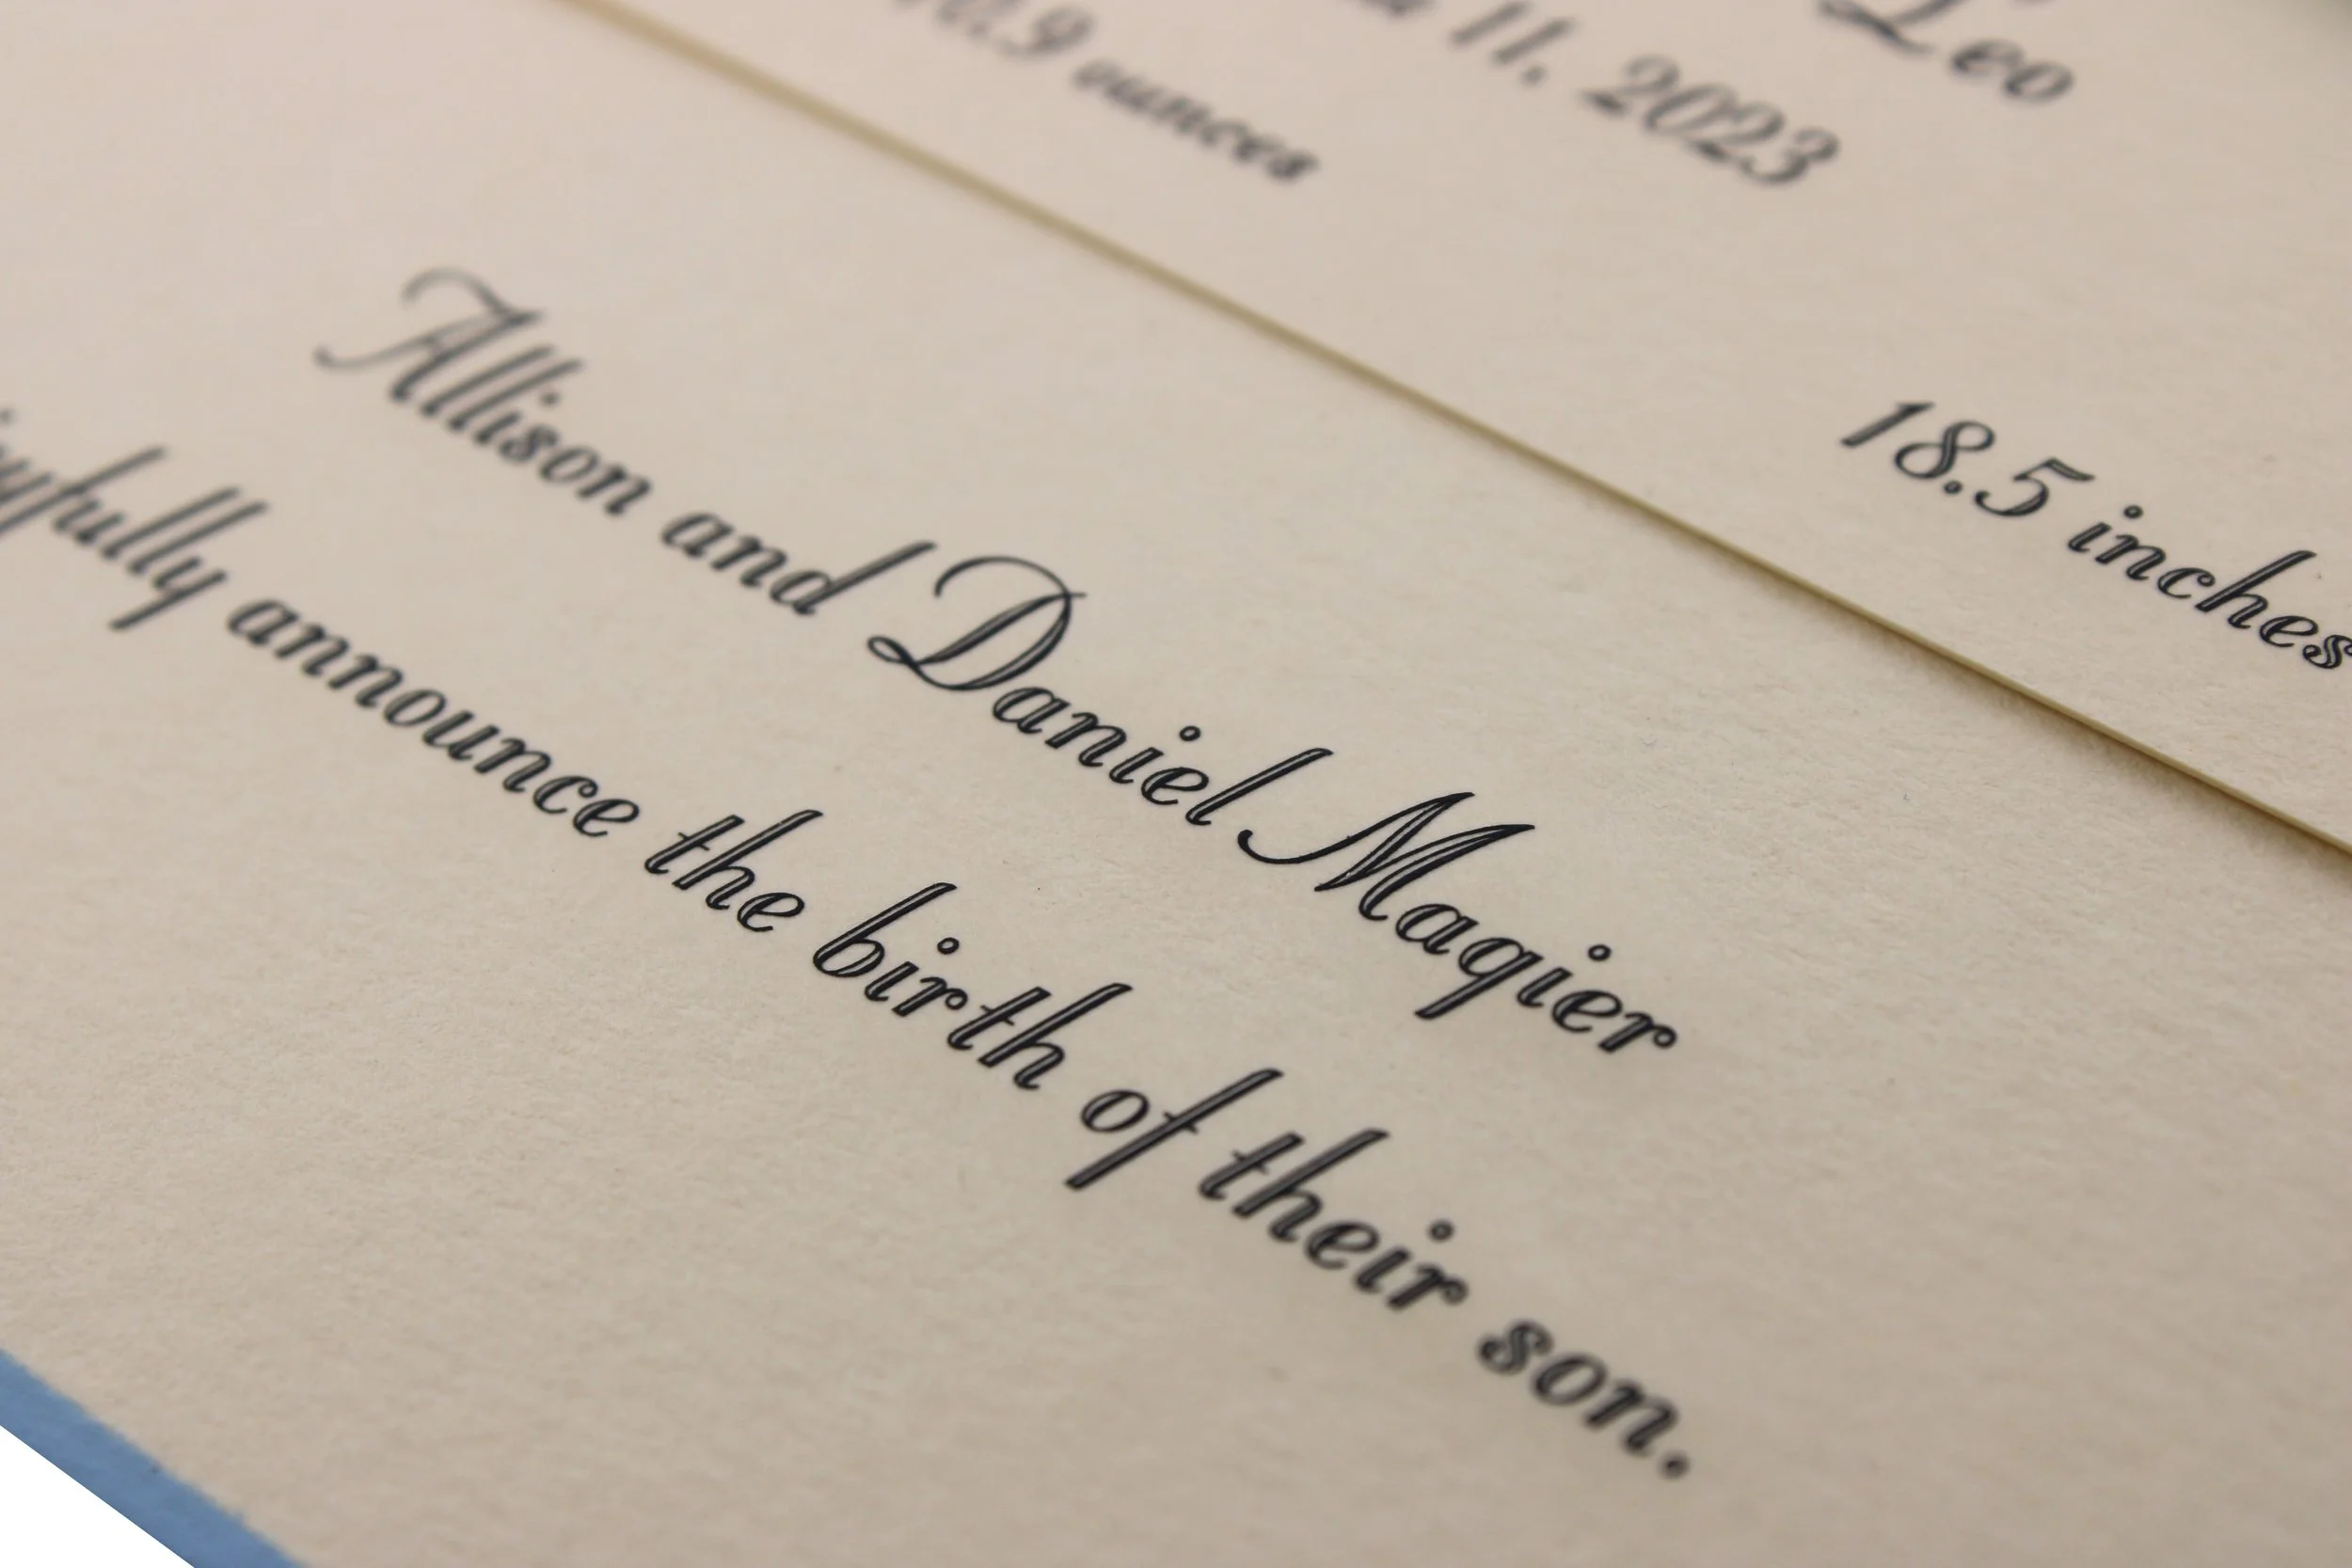 Leo
11, 2023
ounces
18.5 inches
Allison and Daniel Magier
joyfully announce the birth of their son.